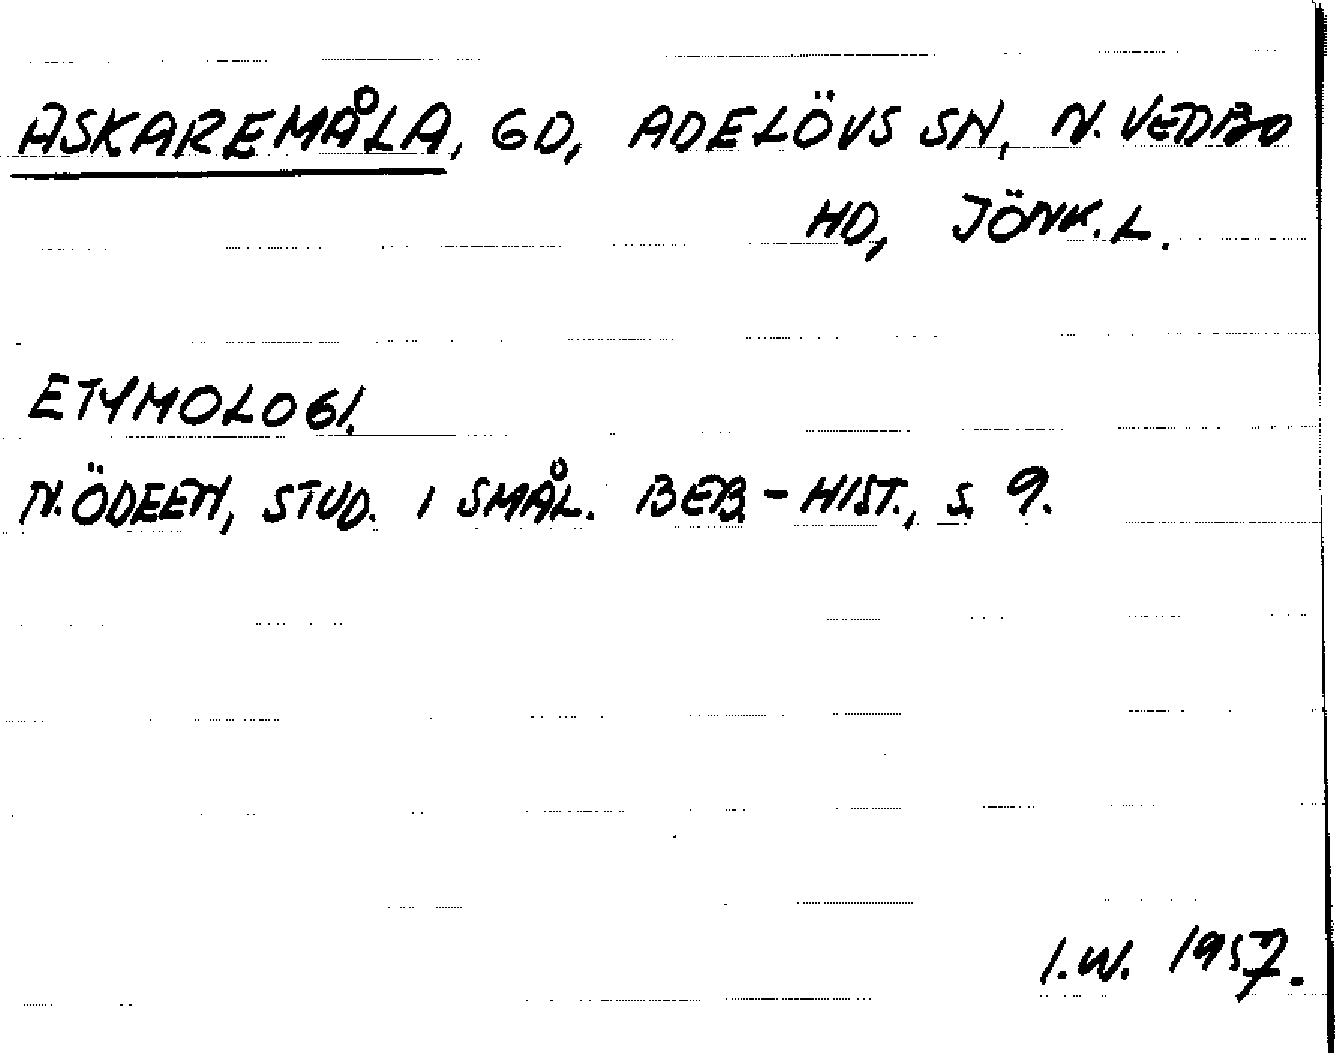 ASKAREMÅLA, GD, ADELÖVS SN, N. VEDBO
HD, JÖNK. L.
ETYMOLOGI.
N. ÖDEEN, STUD. I SMÅL. BEB.-HIST., S. 9.
I.W. 1957.